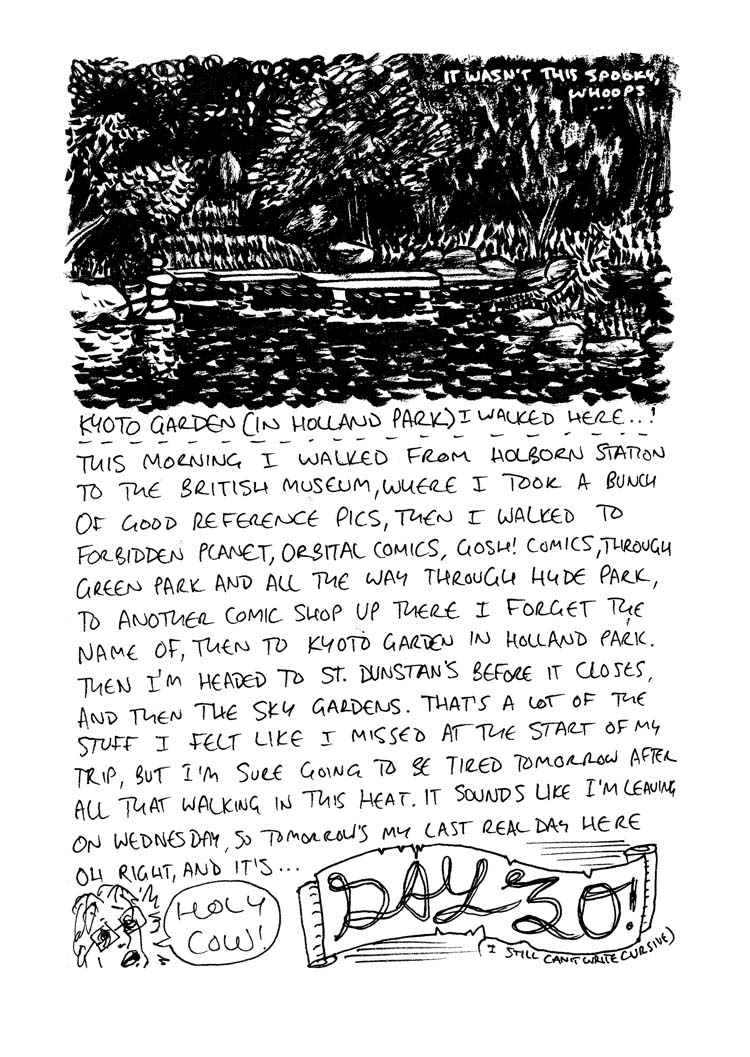 IT WASN'T THIS SPOOKY,
WHOOPS
...
KYOTO GARDEN (IN HOLLAND PARK) I WALKED HERE...!
THIS MORNING I WALKED FROM HOLBORN STATION
TO THE BRITISH MUSEUM, WHERE I TOOK A BUNCH
OF GOOD REFERENCE PICS, THEN I WALKED TO
FORBIDDEN PLANET, ORBITAL COMICS, GOSH! COMICS, THROUGH
GREEN PARK AND ALL THE WAY THROUGH HYDE PARK,
TO ANOTHER COMIC SHOP UP THERE I FORGET THE
NAME OF, THEN TO KYOTO GARDEN IN HOLLAND PARK.
THEN I'M HEADED TO ST. DUNSTAN'S BEFORE IT CLOSES,
AND THEN THE SKY GARDENS. THAT'S A LOT OF THE
STUFF I FELT LIKE I MISSED AT THE START OF MY
TRIP, BUT I'M SURE GOING TO BE TIRED TOMORROW AFTER
ALL THAT WALKING IN THIS HEAT. IT SOUNDS LIKE I'M LEAVING
ON WEDNESDAY, SO TOMORROW'S MY LAST REAL DAY HERE
OH RIGHT, AND IT'S...
HOLY
COW!
DAY 30!
(I STILL CAN'T WRITE CURSIVE)